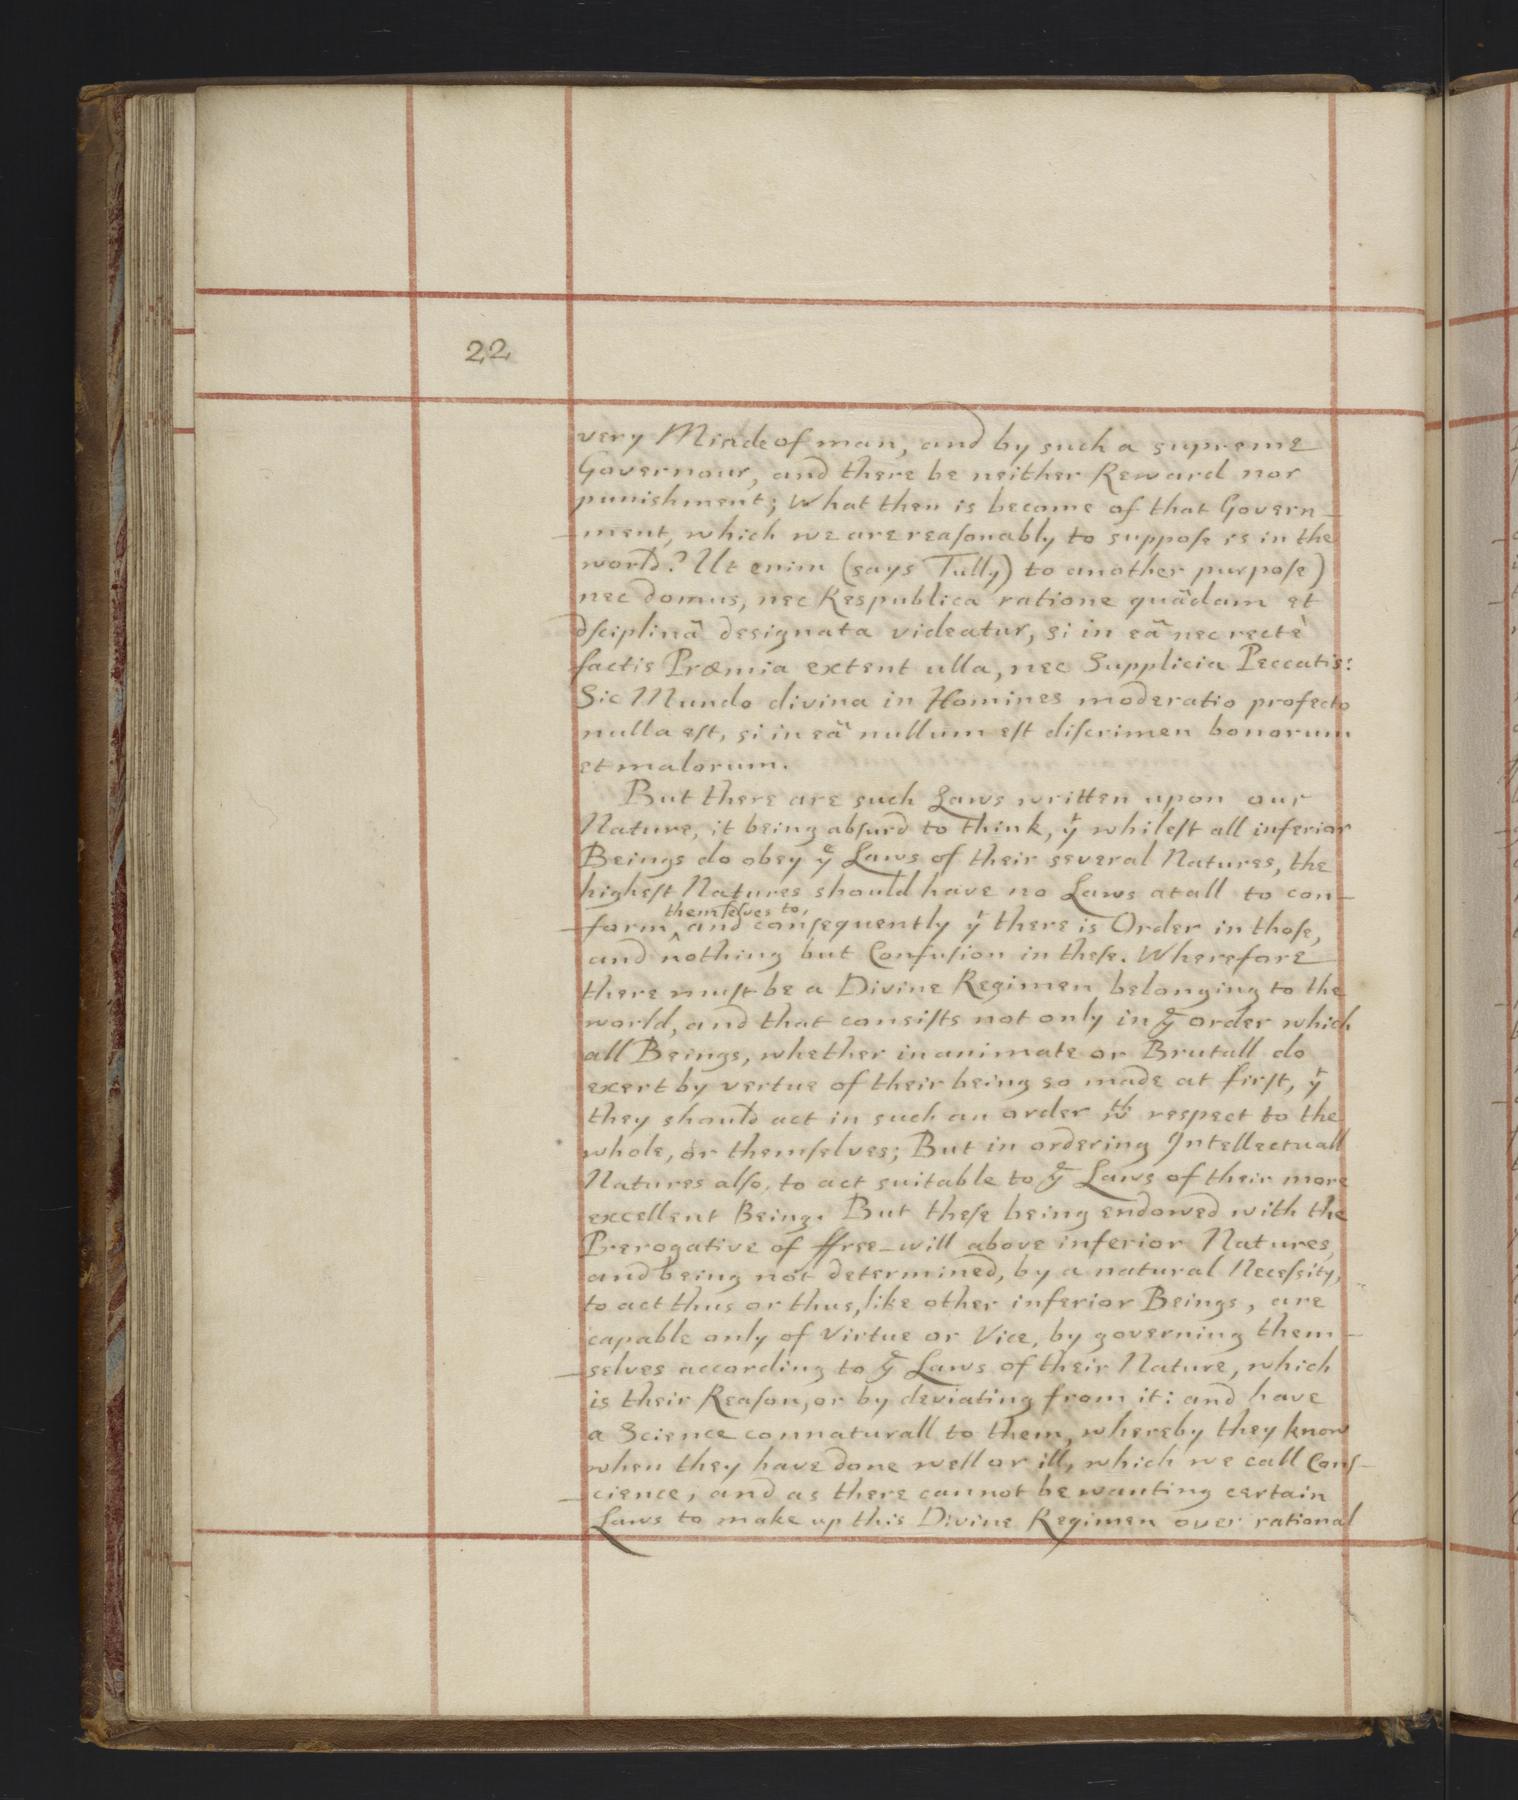 22
very Minde of man, and by such a supreme
Governour, and there be neither Reward nor
punishment; What then is become of that Govern-
-ment, which we are reaſonably to suppoſe is in the
world? Ut enim (says Tully) to another purpoſe)
nec domus, nec Respublica ratione quâdam et
dſciplinâ designata videatur, si in eâ nec rectè
factis Præmia extent ulla, nec Supplicia Peccatis:
Sic Mundo divina in Homines moderatio profecto
nulla eſt, si in eâ nullum eſt diſcrimen bonorum
et malorum.
But there are such Laws written upon our
Nature, it being abſurd to think, yͭ whileſt all inferior
Beings do obey yͤ Laws of their several Natures, the
higheſt Natures should have no Laws at all to con-
themſelves to,
-form ‸ and conſequently yͭ there is Order in thoſe,
and nothing but Confuſion in theſe. Wherefore
there muſt be a Divine Regimen belonging to the
world, and that consiſts not only in yͤ order which
all Beings, whether inanimate or Brutall do
exert by vertue of their being so made at firſt, yͭ
they should act in such an order wͭͪ respect to the
whole, or themſelves; But in ordering Intellectuall
Natures alſo, to act suitable to yͤ Laws of their more
excellent Being. But theſe being endowed with the
Prerogative of ffree-will above inferior Natures,
and being not determined, by a natural Neceſsity,
to act thus or thus, like other inferior Beings, are
capable only of Virtue or Vice, by governing them-
-selves according to yͤ Laws of their Nature, which
is their Reaſon, or by deviating from it: and have
a Science connaturall to them, whereby they know
when they have done well or ill, which we call Conſ-
-cience; and as there cannot be wanting certain
Laws to make up this Divine Regimen over rational